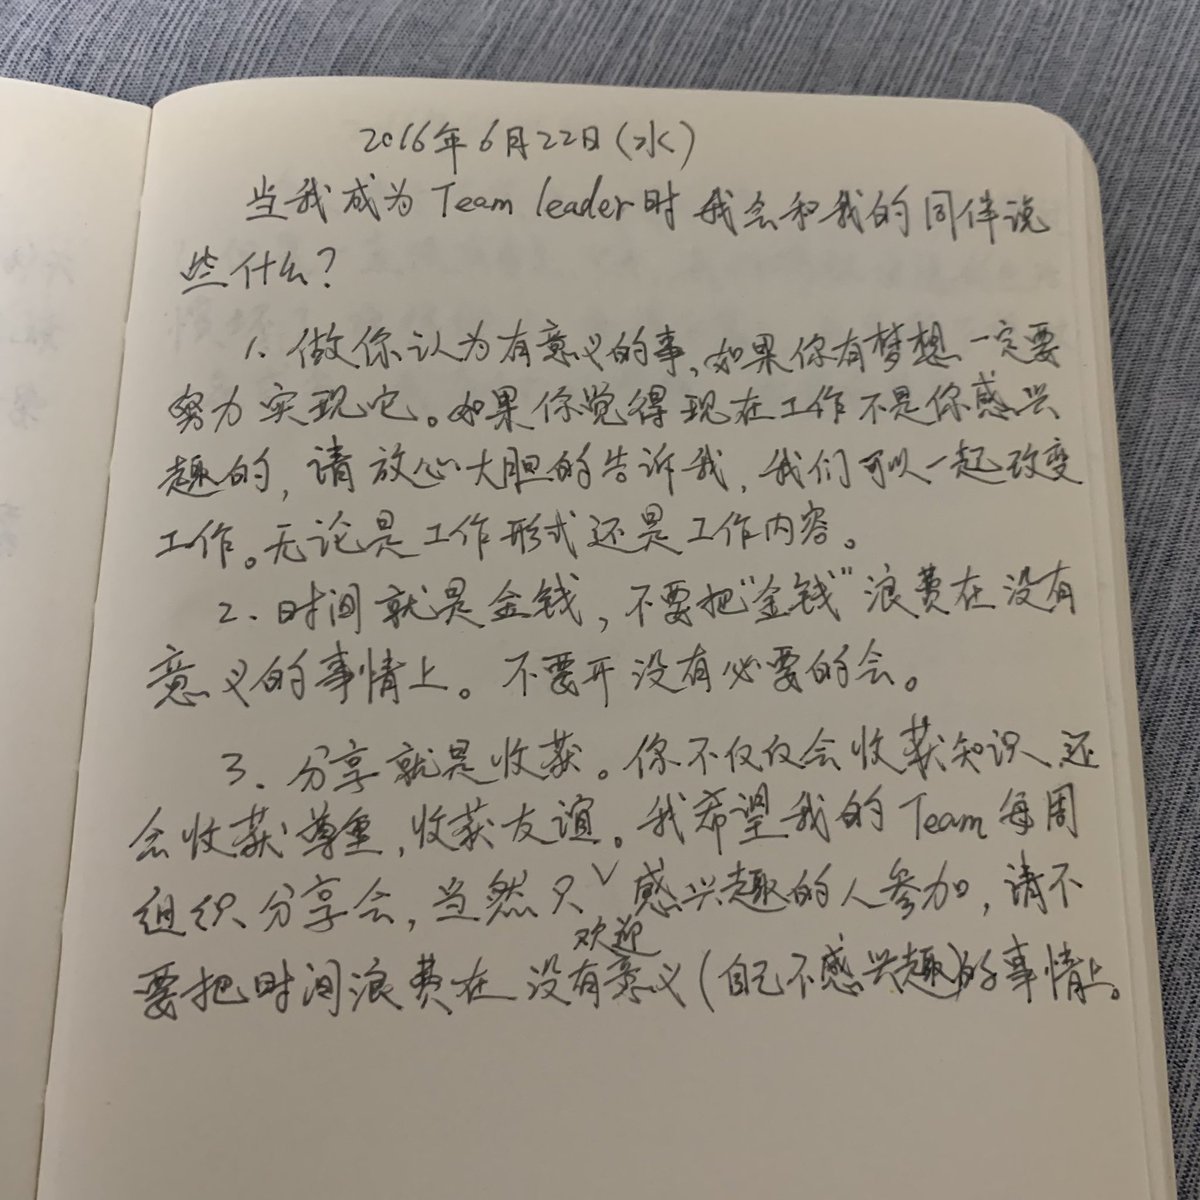 2016年6月22日(水)
当我成为Team leader时我会和我的同伴说
些什么?
1. 做你认为有意义的事,如果你有梦想一定要
努力实现它。如果你觉得现在工作不是你感兴
趣的,请放心大胆的告诉我,我们可以一起改变
工作。无论是工作形式还是工作内容。
2. 时间就是金钱,不要把“金钱”浪费在没有
意义的事情上。不要开没有必要的会。
3. 分享就是收获。你不仅仅会收获知识还
会收获尊重,收获友谊。我希望我的Team每周
组织分享会,当然只∨感兴趣的人参加,请不
欢迎
要把时间浪费在没有意义(自己不感兴趣)的事情上。